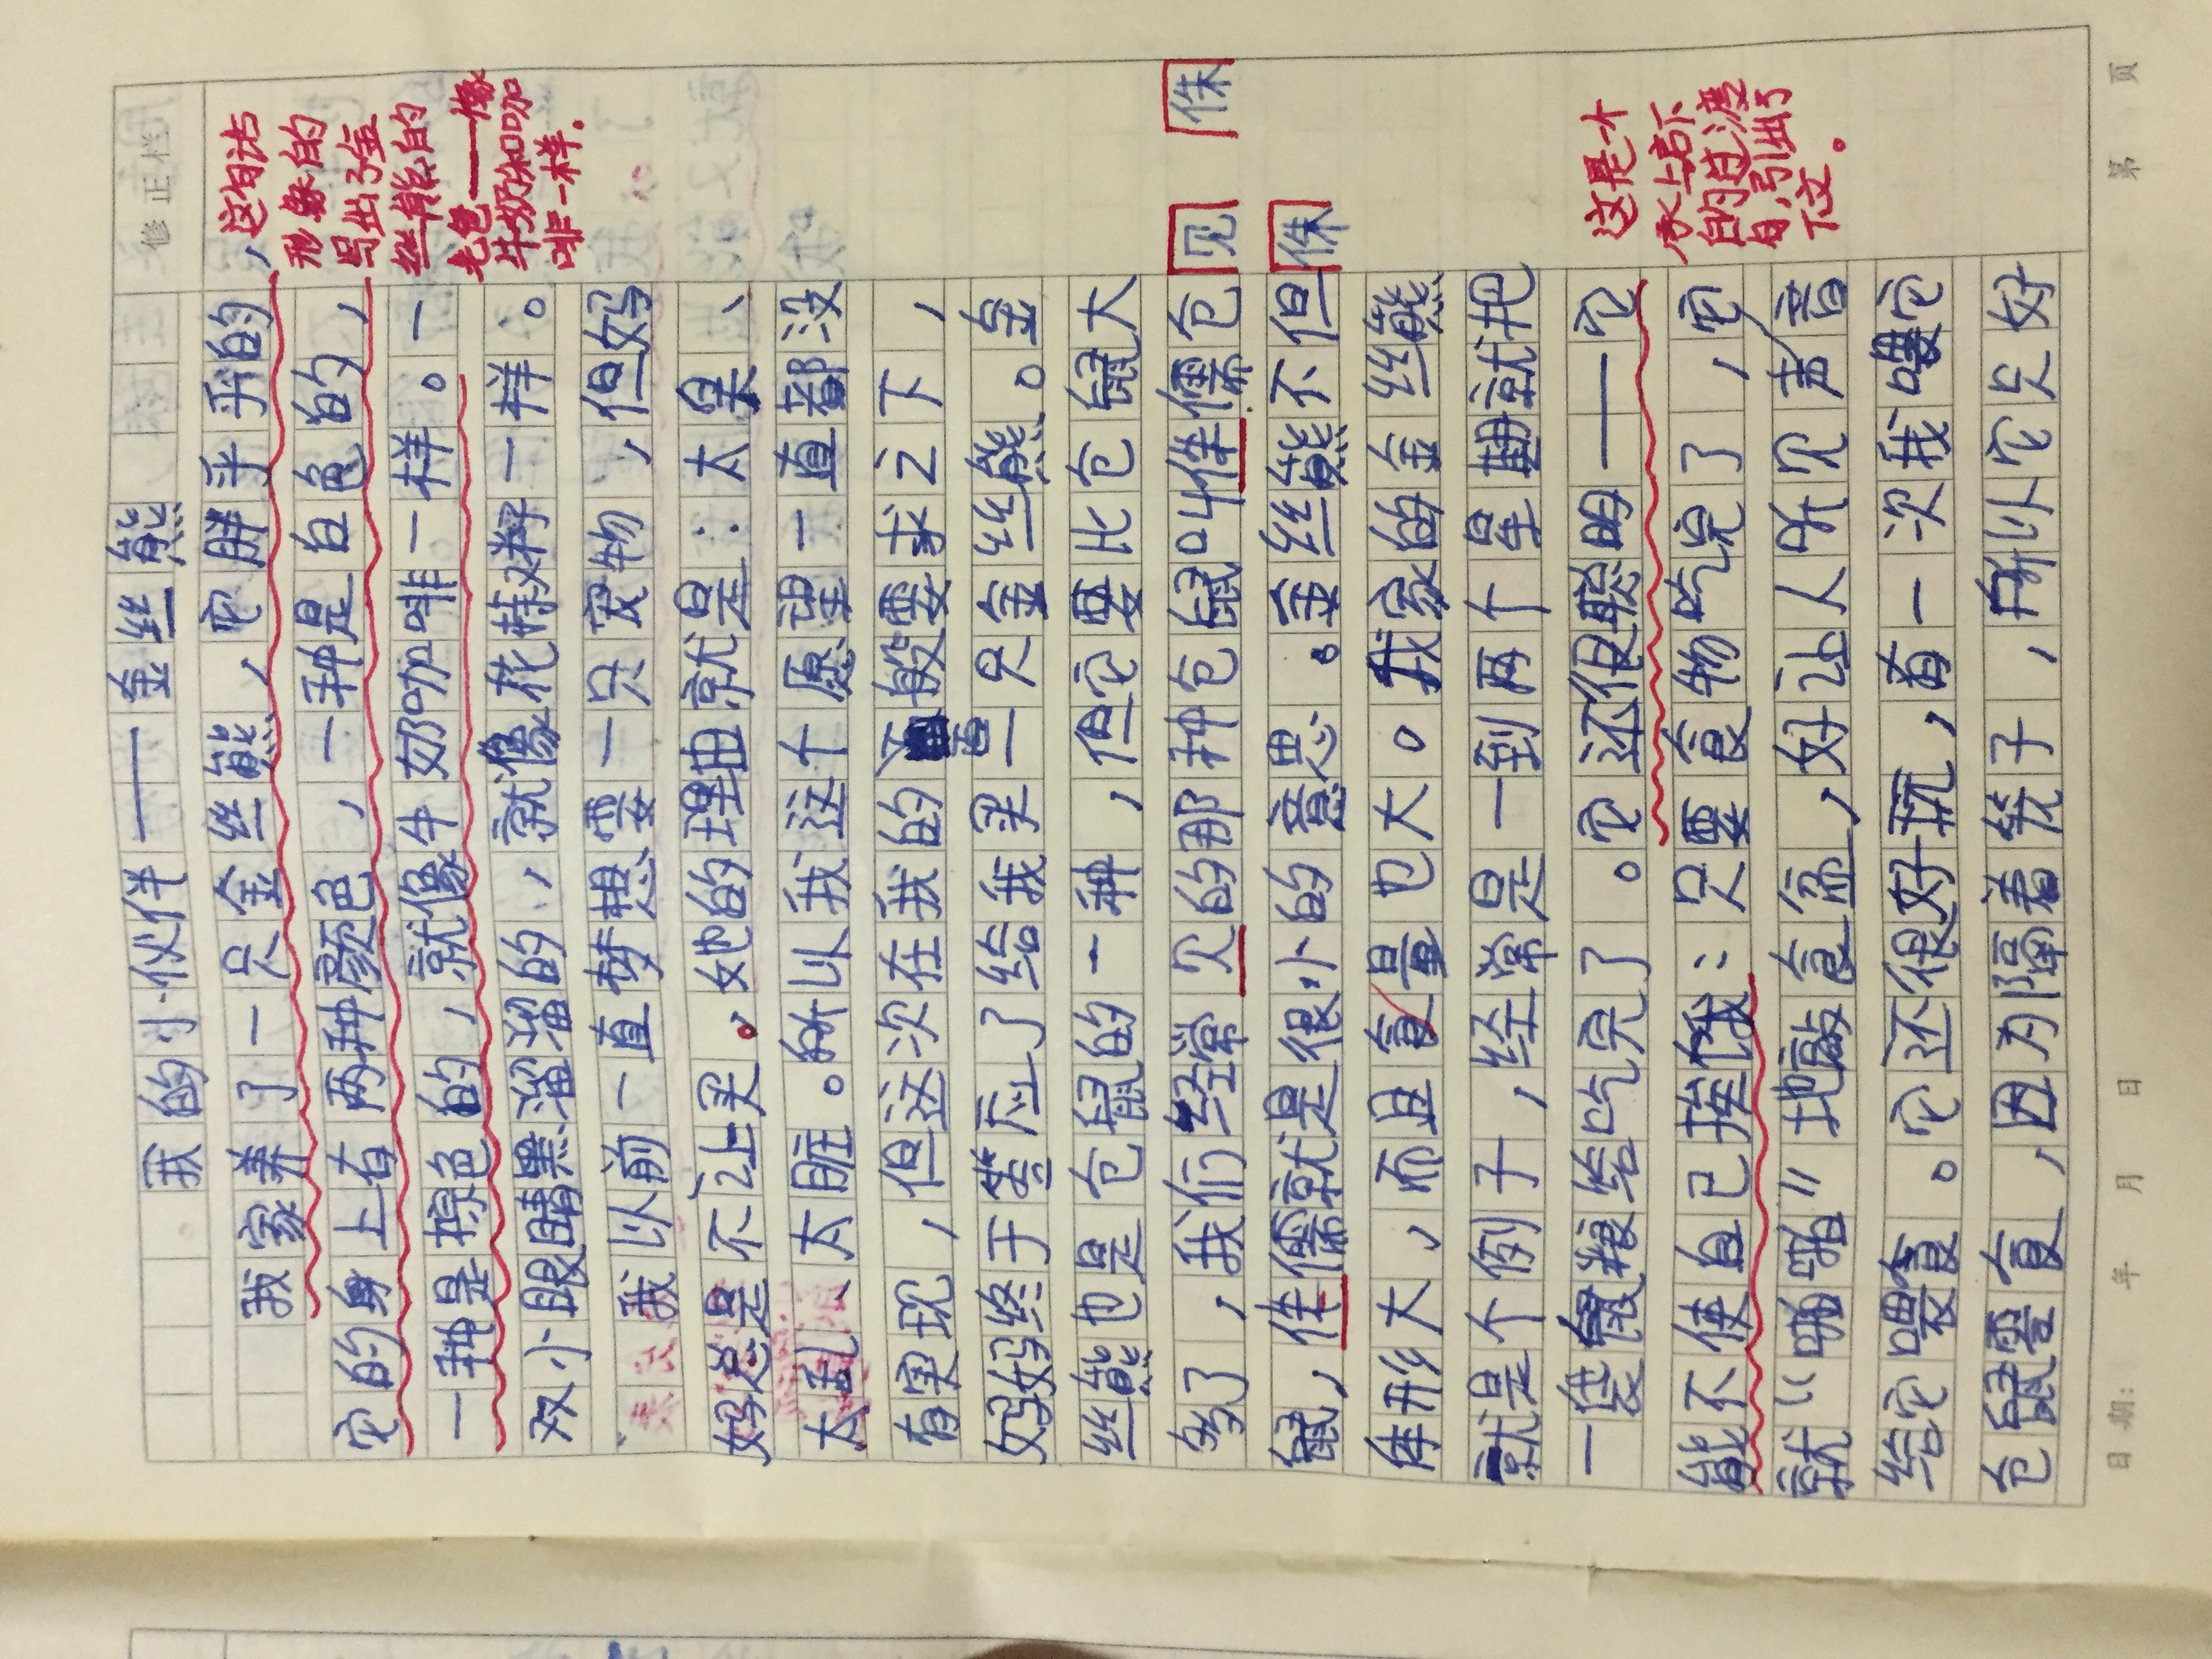 修正栏
我的小伙伴——金丝熊
我家养了一只金丝熊,它胖乎乎的,
它的身上有两种颜色,一种是白色的,
一种是棕色的,就像牛奶咖啡一样。一
双小眼睛黑溜溜的,就像花籽一样。
我以前一直梦想要一只宠物,但妈
妈总是不让买。她的理由就是:太臭、
太乱、太脏。所以我这个愿望一直都没
有实现,但这次在我的百般要求之下,
妈妈终于答应了给我买一只金丝熊。金
丝熊也是仓鼠的一种,但它要比仓鼠大
多了,我们经常见的那种仓鼠叫侏儒仓
鼠,侏儒就是很小的意思。金丝熊不但
体形大,而且食量也大。我家的金丝熊
就是个例子,经常是一到两个星期就把
一袋鼠粮给吃完了。它还很聪明——它
能不使自己挨饿:只要食物吃完了,它
就“啪啪”地敲食盆,好让人听见声音
给它喂食。它还很好玩,有一次我喂它
仓鼠零食,因为隔着笼子,所以它只好
这句话
形象的
写出了金
丝熊的
毛色——像
牛奶和咖
啡一样。
见 侏
侏
这是一个
承上启下
的过渡
句,引出了
下文。
日期: 年 月 日
第 页